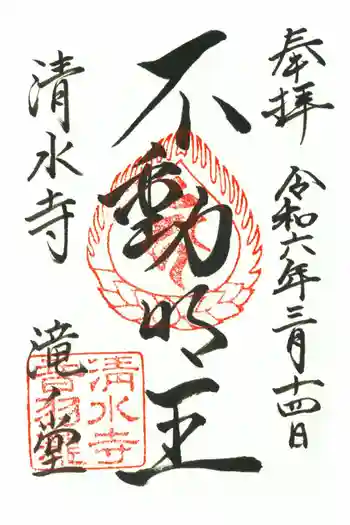 奉拝 令和六年三月十四日
不動明王
清水寺 滝ノ堂
清水寺